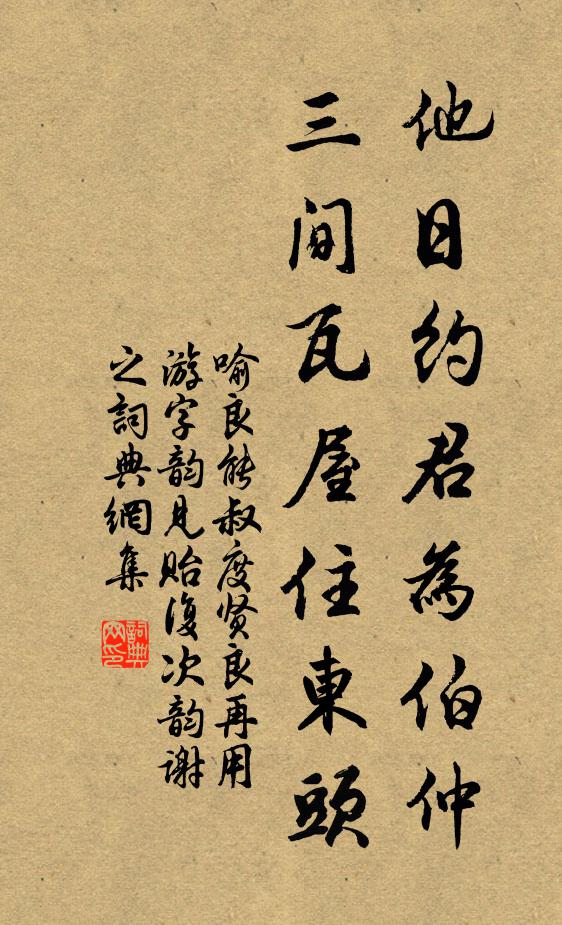 他日約君為伯仲
三间瓦屋住東頭
喻良能叔度贤良再用
游字韵見贻復次韵谢
之詞典網集
詞典
网印